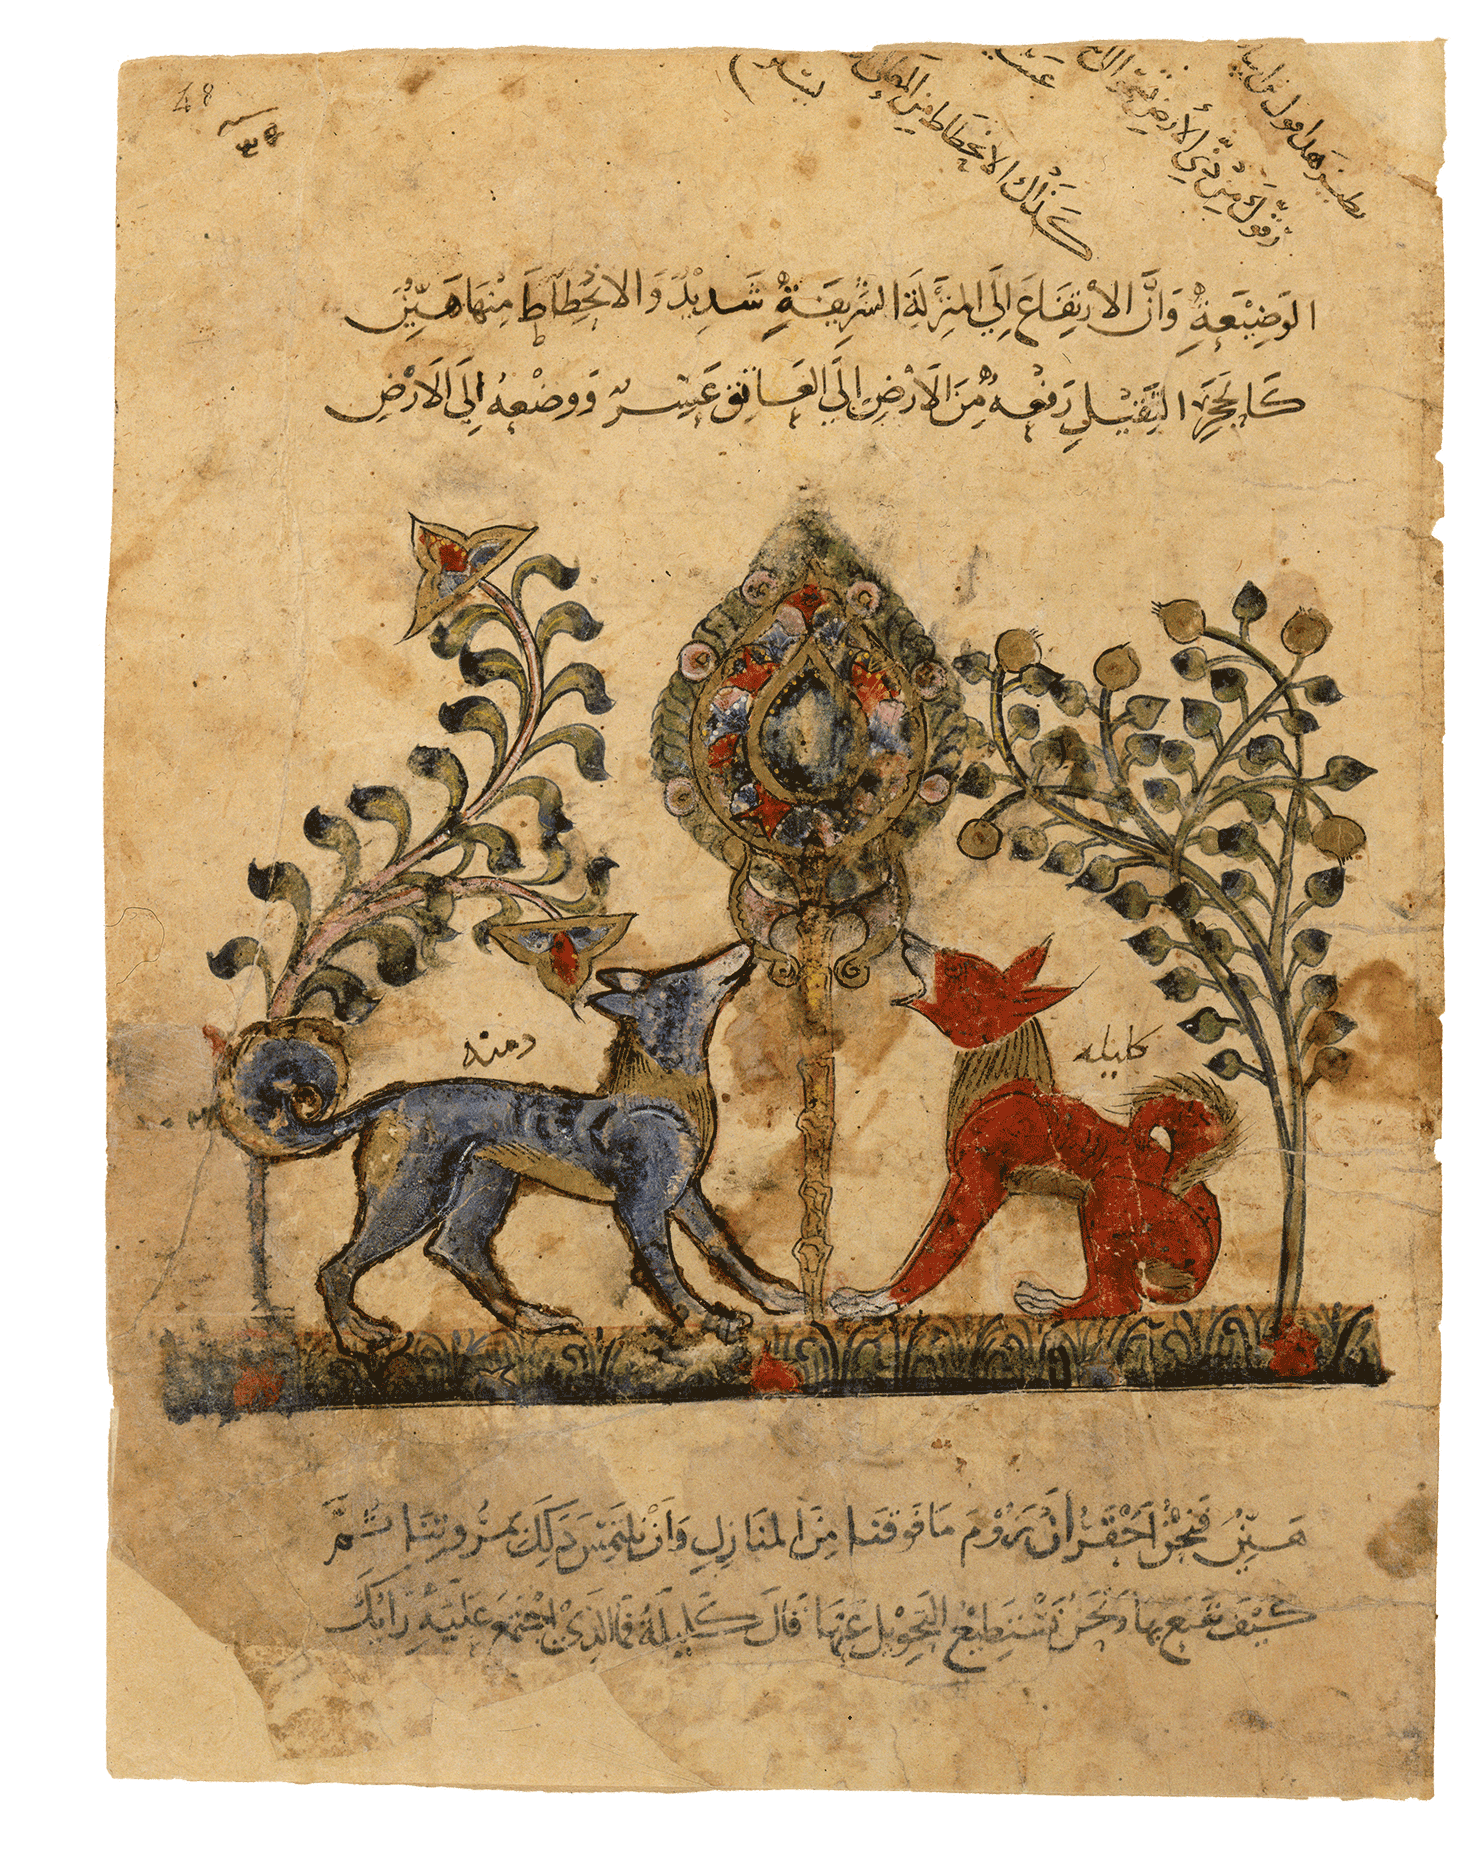 كذلك الانحطاط من
الوَضِيْعَةِ وَاَنَّ الارْتِفَاعَ اِلَى المَنْزِلَةِ الشَرِيفَةِ شَدِيْدٌ وَالانْحِطَاطَ مِنْهَا هَيِّنٌ
كَالحَجَرِ الثَّقِيْلِ رَفْعُهُ مِنَ الاَرْضِ اِلَى العَاتِق عَسِرٌ وَوضْعُهُ اِلَى الاَرْضِ
دمنه
كليله
هَيِّنٌ فَنَحْنُ اَحَقُّ اَنْ نَرُوْمَ مَا فَوْقَنَا مِنَ المَنَازِلِ وَاَنْ نَلْتَمِسَ ذَلِكَ بمُرُوتِنَا ثُمَّ
كَيْفَ نَقْنَع بِهَا وَنَحْنُ نَسْتَطِيْعُ التَحْوِيْل عَنْهَا قَالَ كَلِيْلَةُ فَمَا الَذِيْ اجْتَمَعَ عَلَيْهِ رَايُكَ